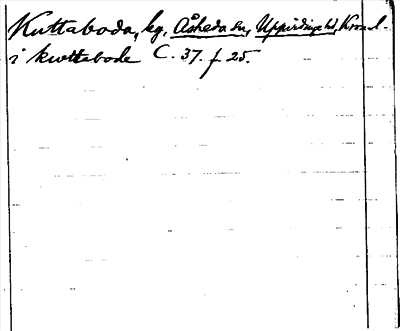 Kuttaboda, kg, Åsheda sn, Uppvidinge hd, Kron. l.
i kwttabode C. 37. f 25.